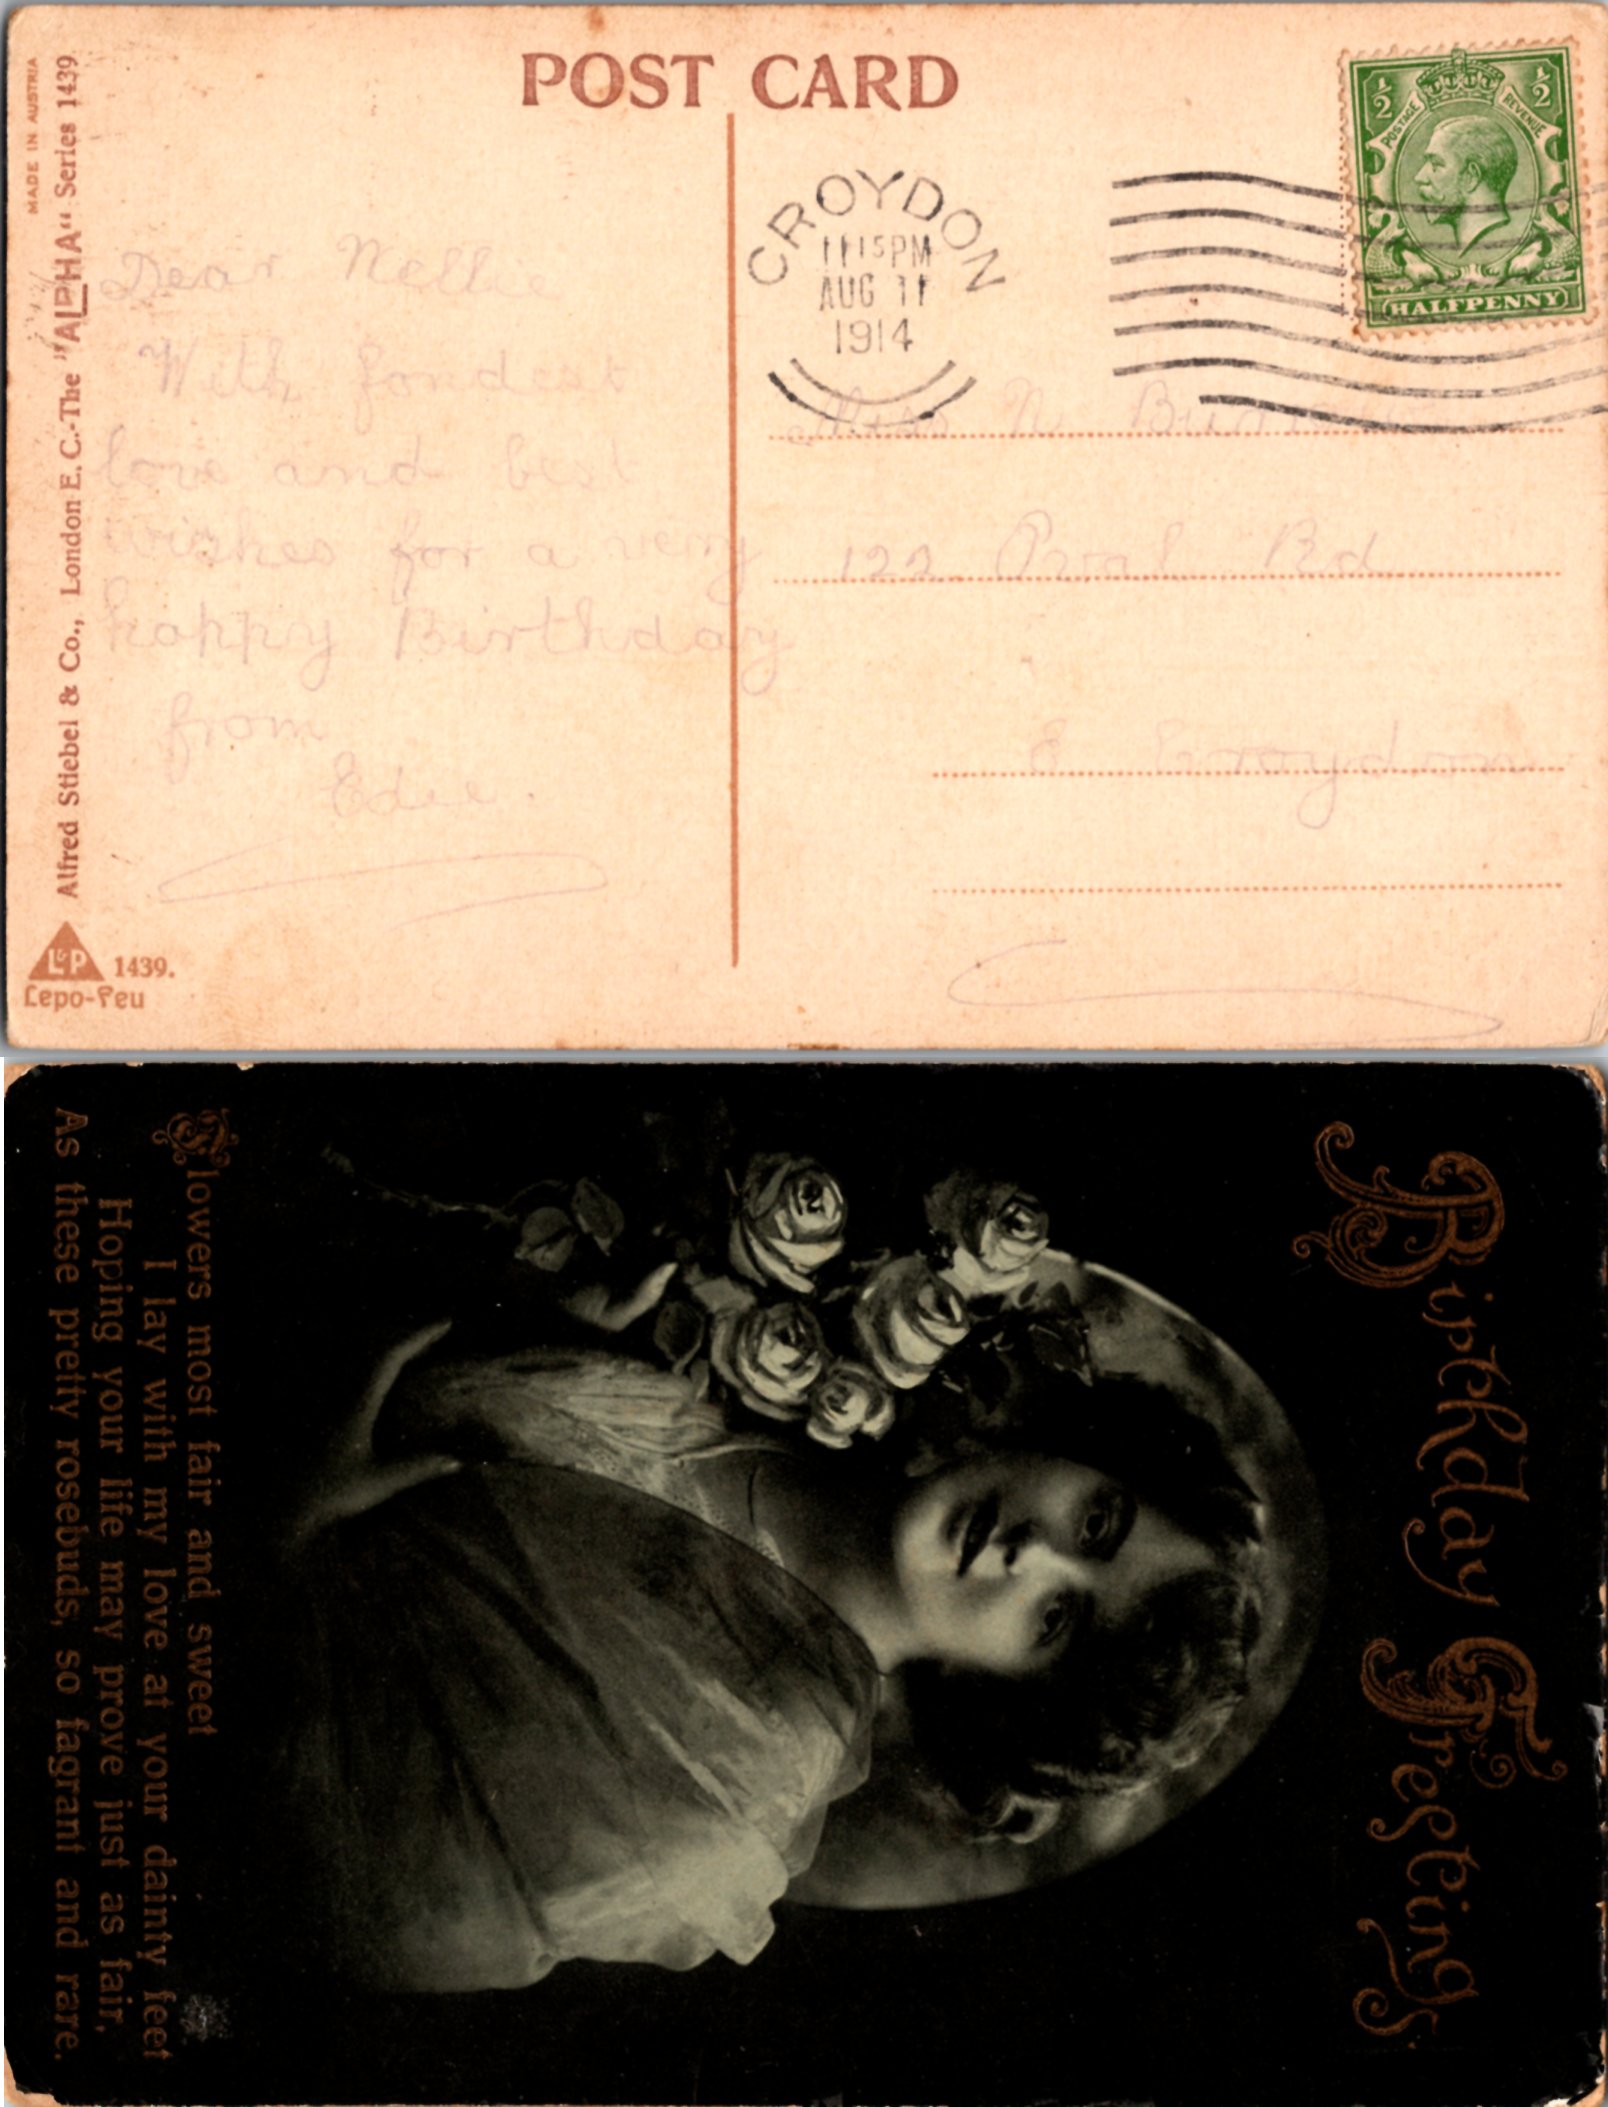 POST CARD
MADE IN AUSTRIA
Alfred Stiebel & Co., London E. C.-The "ALPHA" Series 1439
L&P
1439.
Lepo-Peu
CROYDON
1115PM
AUG 11
1914
½ ½
POSTAGE REVENUE
HALFPENNY
Dear Nellie
With fondest
love and best
wishes for a very
happy Birthday
from
Edie.
Miss N
122 Oval Rd
E Croydon
Birthday Greetings
Flowers most fair and sweet
I lay with my love at your dainty feet
Hoping your life may prove just as fair,
As these pretty rosebuds, so fagrant and rare.